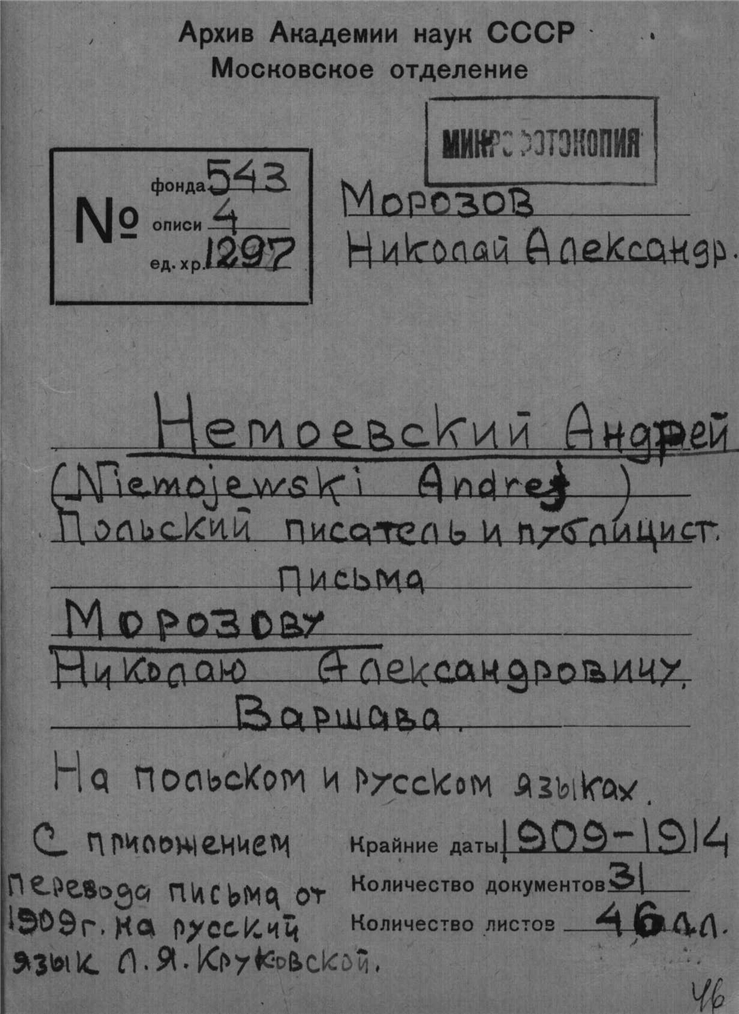 Архив Академии наук СССР
Московское отделение
МИКРОФОТОКОПИЯ
№
фонда 543
описи 4
ед. хр. 1297
Морозов
Николай Александр.
Немоевский Андрей
(Niemojewski Andrej)
Польский писатель и публицист.
письма
Морозову
Николаю Александровичу.
Варшава.
На польском и русском языках.
С приложением
перевода письма от
1909г. на русский
язык Л.Я. Круковской.
Крайние даты 1909-1914
Количество документов 31
Количество листов 46 лл.
46